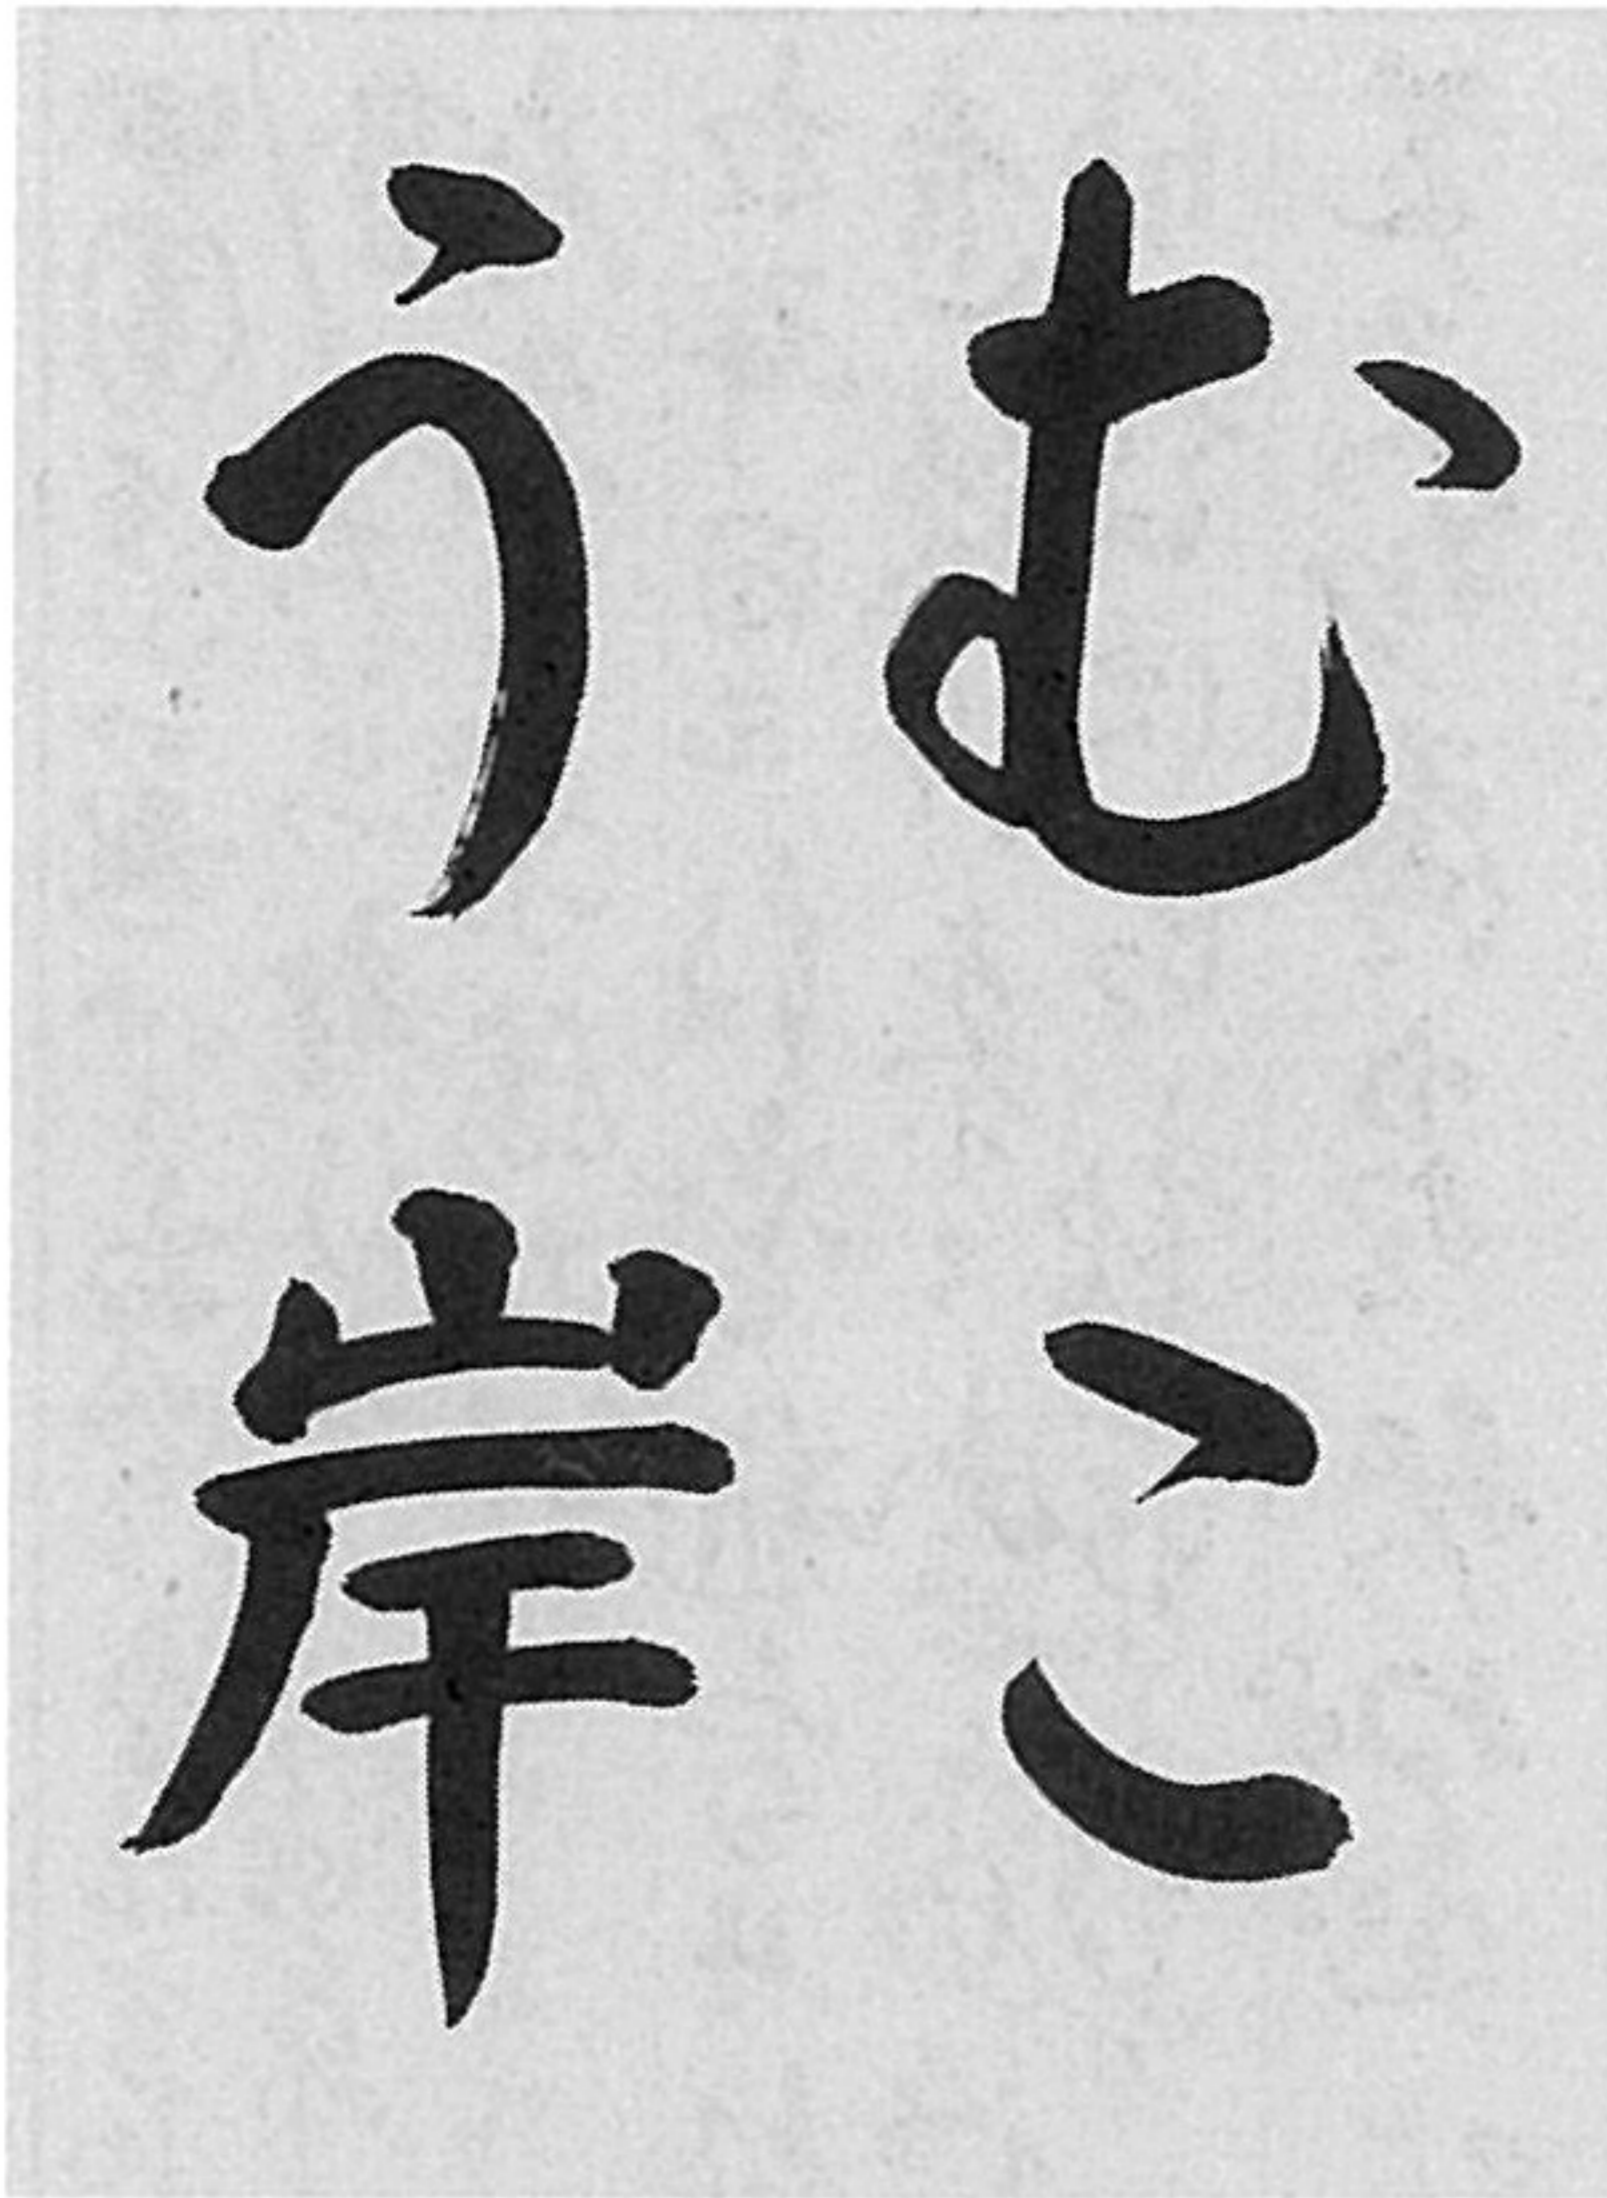 むこ
う岸